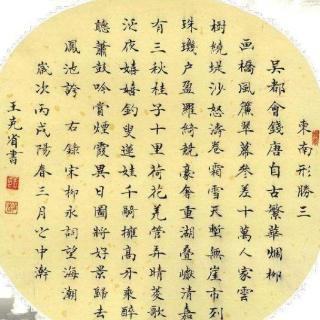 東南形勝三
吳都會錢唐自古繁華煙柳
畫橋風簾翠幕參差十萬人家雲
樹繞堤沙怒濤卷霜雪天塹無崖市列
珠璣戶盈羅綺競豪奢重湖疊巘清嘉
有三秋桂子十里荷花羌管弄晴菱歌
泛夜嬉嬉釣叟蓮娃千騎擁高牙乘醉
聽蕭鼓吟賞煙霞異日圖將好景歸去
鳳池誇 右錄宋柳永詞望海潮
歲次丙戌陽春三月之中澣
王克省書